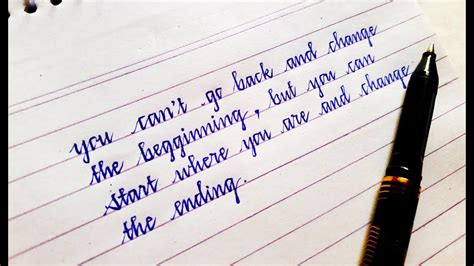 you can't go back and change
the begginning, but you can
start where you are and change
the ending.